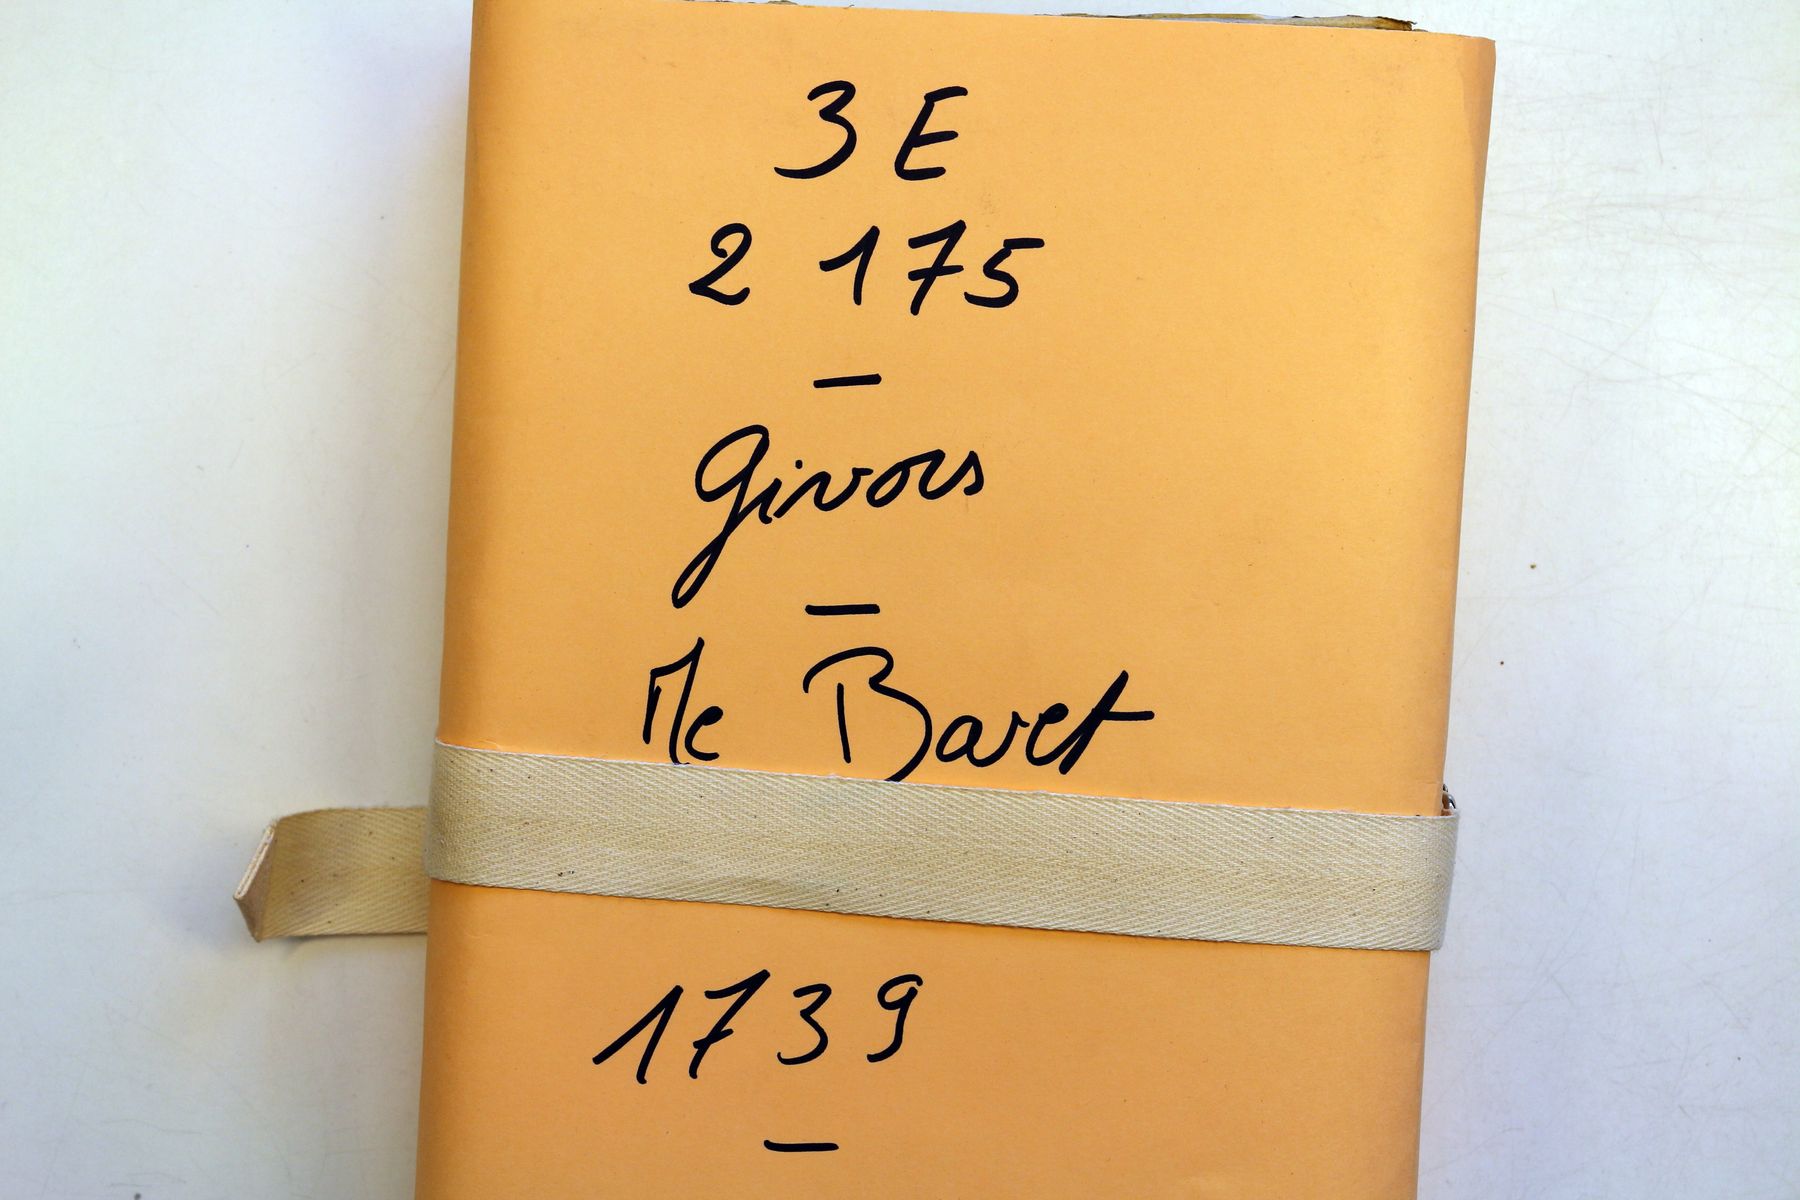 3 E
2 175
—
Givors
—
Me Baret
1739
—